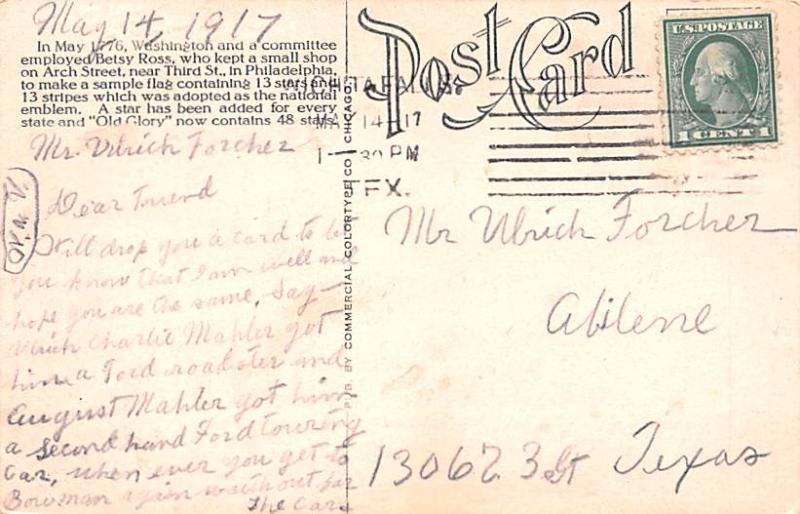 May 14, 1917
In May 1776, Washington and a committee
employed Betsy Ross, who kept a small shop
on Arch Street, near Third St., in Philadelphia,
to make a sample flag containing 13 stars and
13 stripes which was adopted as the national
emblem. A star has been added for every
state and "Old Glory" now contains 48 stars.
Mr. Ulrich Forcher
Dear Friend
Will drop you a card to let
you know that I am well and
hope you are the same, Say
Ulrich Charlie Mahler got
him a Ford roadster and
August Mahler got him
a second hand Ford touring
Car, when ever you get to
Bowman again watch out for
The Cars
PUB. BY COMMERCIAL COLORTYPE CO., CHICAGO.
Post Card
U.S. POSTAGE
1 CENT 1
MAY 14 17
30 PM
TEX.
Mr Ulrich Forcher
Abilene
1306 2. 3 St Texas